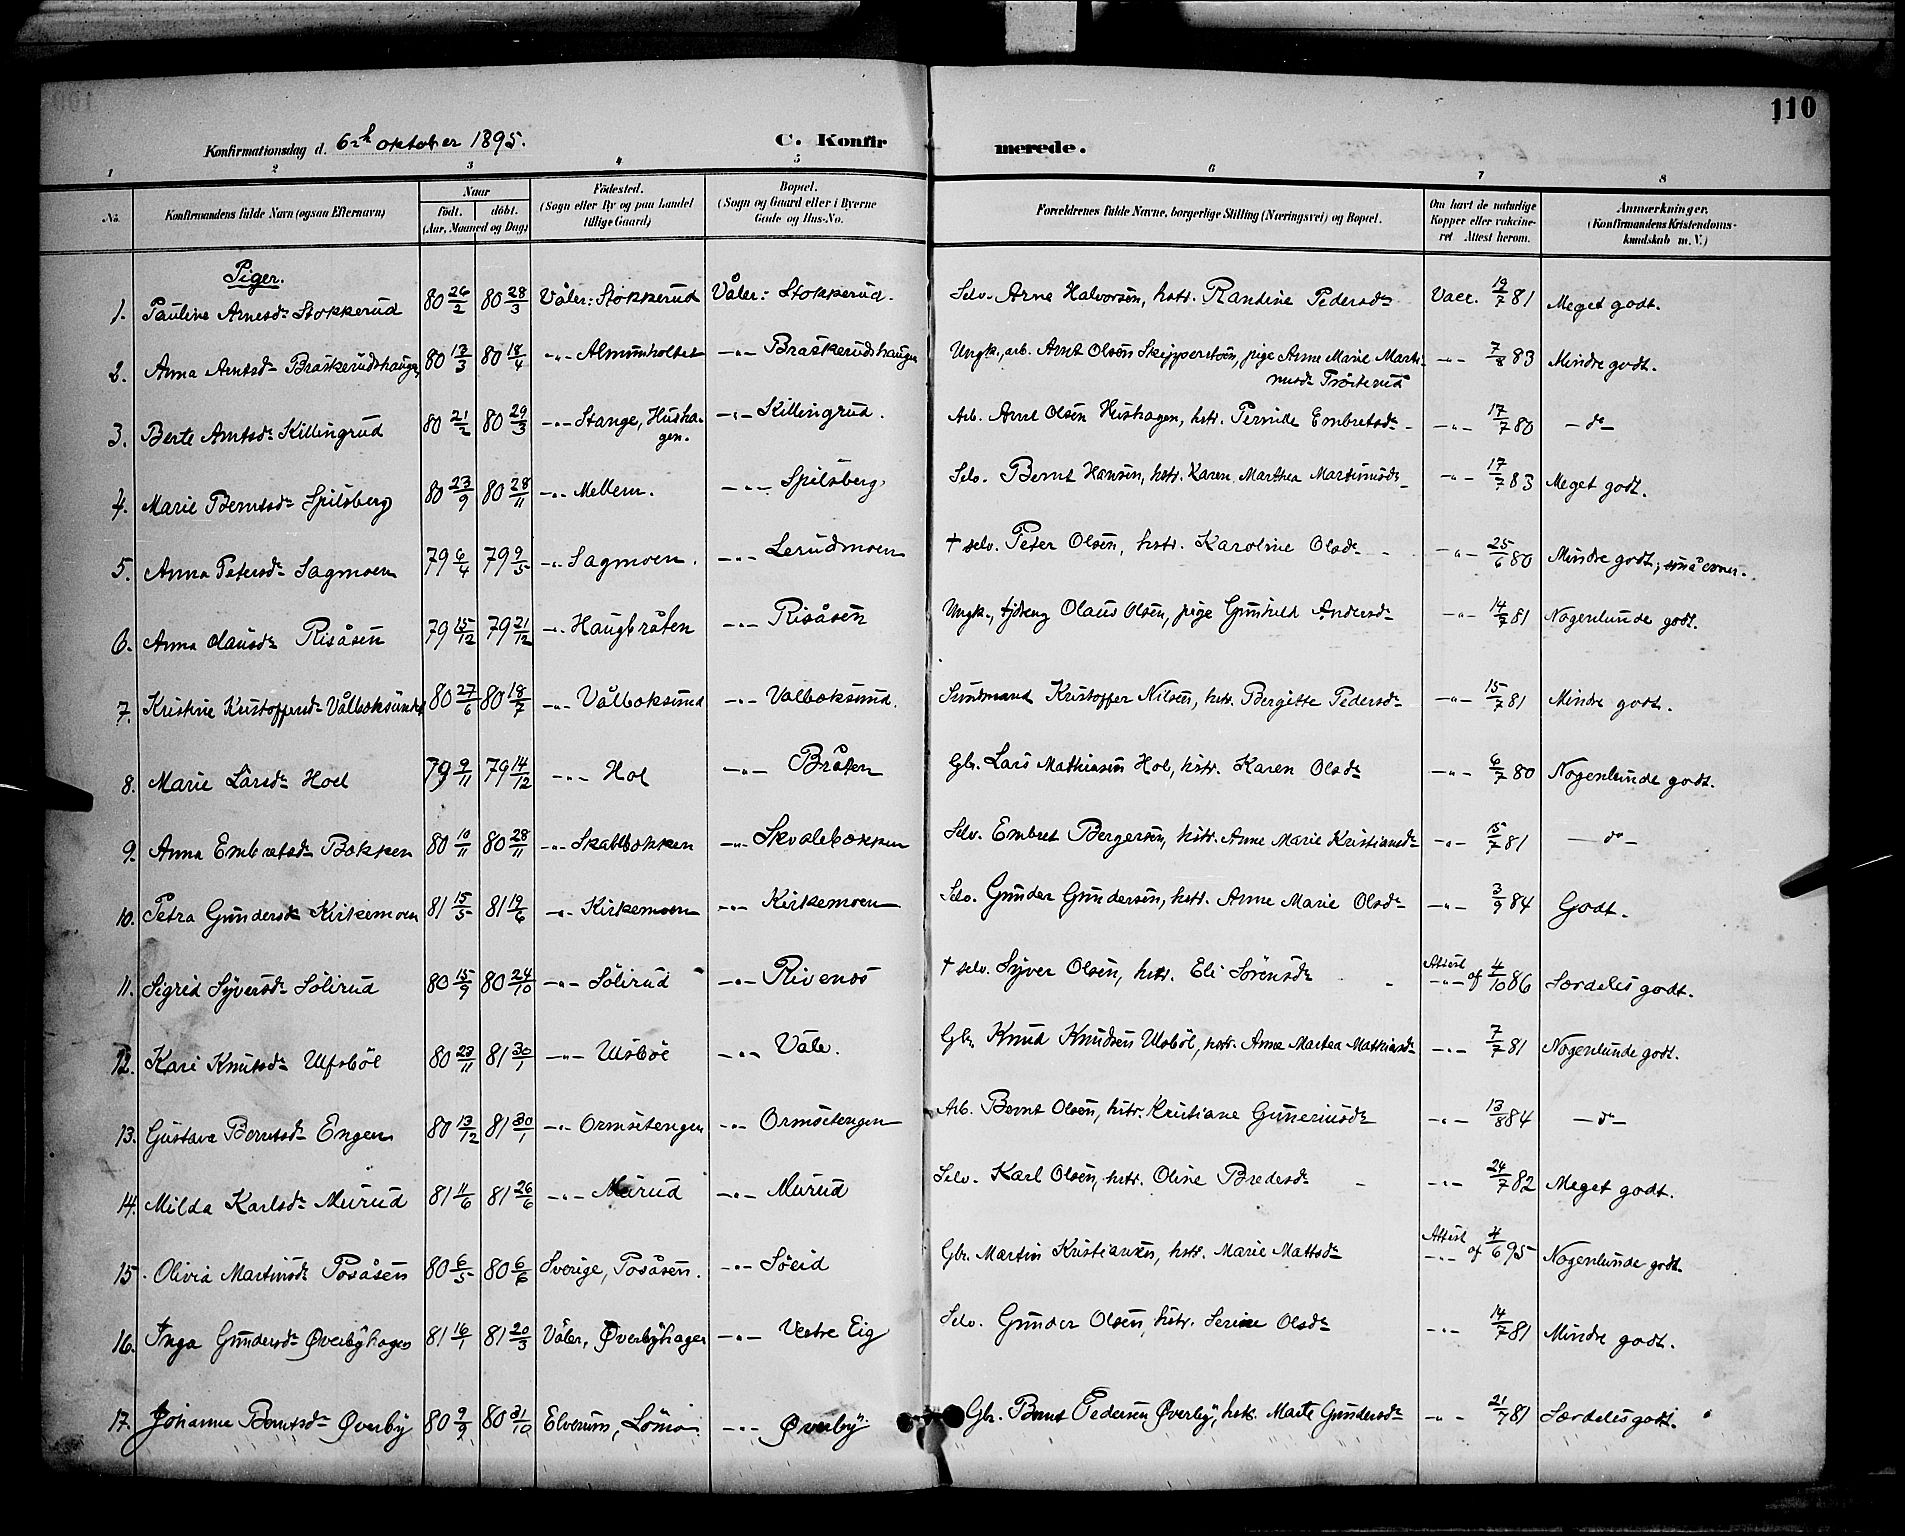 110
Konfirmationsdag d. 6te oktober 1895. C. Konfirmerede.
1 2 3 4 5 6 7 8
No. Konfirmandens fulde Navn (ogsaa Efternavn) Naar født. døbt. (Aar, Maaned og Dag) Fødested. (Sogn eller By og paa Landet tillige Gaard) Bopæl. (Sogn og Gaard eller i Byerne Gade og Hus-No. Forældrenes fulde Navne, borgerlige Stilling (Næringsvei) og Bopæl. Om havt de naturlige Kopper eller vakcineret Attest herom. Anmærkninger. (Konfirmandens Kristendomskundskab m. V.)
Piger.
1. Pauline Arnesdr Stokkerud 80 26/2 80 28/3 Våler: Stokkerud Våler: Stokkerud. Selv. Arne Halvorsen, hstr. Randine Pedersdr Vacc. 19/7 81 Meget godt.
2. Anna Arntsdr Braskerudshaugen 80 13/3 80 18/4 -"- Almunholtet -"- Braskerudshaugen Ungk., arb. Arnt Olsen Skipperstøen, pige Anne Marie Martinusdr Trøsterud -"- 7/8 83 Mindre godt.
3. Berte Arntsdr Killingrud 80 21/2 80 29/3 -"- Stange, Hushagen. -"- Killingrud. Arb. Arnt Olsen Hushagen, hstr. Pernille Embretsdr -"- 17/7 80 - do -
4. Marie Berntsdr Spilsberg 80 23/9 80 28/11 -"- Mellem. -"- Spilsberg Selv. Bernt Hansen, hstr. Karen Marthea Martinusdr -"- 17/7 83 Meget godt.
5. Anna Petersdr Sagmoen 79 6/4 79 9/5 -"- Sagmoen. -"- Lerudmoen † selv. Peter Olsen, hstr. Karoline Olsdr -"- 25/6 80 Mindre godt; små evner.
6. Anna Olausdr Risåsen 79 15/12 79 21/12 -"- Haugbråten -"- Risåsen Ungk., Olaus Olsen, pige Gunhild Andersdr -"- 14/7 81 Nogenlunde godt.
7. Kristine Kristoffersdr Vålboksundet 80 27/6 80 18/7 -"- Vålboksund -"- Valboksund. Sundmand Kristoffer Nilsen, hstr. Bergitte Pedersdr -"- 15/7 81 Mindre godt.
8. Marie Larsdr Hoel 79 9/11 79 14/12 -"- Hol -"- Bråten Gbr. Lars Mathiasen Hol, hstr. Karen Olsdr -"- 6/7 80 Nogenlunde godt.
9. Anna Embretsdr Bækken 80 10/11 80 28/11 -"- Skalbækken -"- Skvalebækken Selv. Embret Bergersen, hstr. Anne Marie Kristiansdr -"- 15/7 81 - do -
10. Petra Gundersdr Kirkemoen 81 15/5 81 19/6 -"- Kirkemoen -"- Kirkemoen Selv. Gunder Gundersen, hstr. Anne Marie Olsdr -"- 3/9 84 Godt.
11. Sigrid Syversdr Sölirud 80 15/9 80 24/10 -"- Sölirud -"- Rivenæs † selv. Syver Olsen, hstr. Eli Sörensdr Attest -"- af 4/10 86 Særdeles godt.
12. Kari Knutsdr Ulfsböl 80 23/11 81 30/1 -"- Ulsböl -"- Våle. Gbr. Knud Knudsen Ulsböl, hstr. Anne Martea Mathiasdr -"- 7/7 81 Nogenlunde godt.
13. Gustava Berntsdr Engen 80 13/12 81 30/1 -"- Ormsetengen -"- Ormsetengen Arb. Bernt Olsen, hstr. Kristiane Guneriusdr -"- 13/8 84 - do -
14. Milda Karlsdr Murud 81 11/6 81 26/6 -"- Murud -"- Murud Selv. Karl Olsen, hstr. Oline Bredesdr -"- 24/7 82 Meget godt.
15. Olivia Martinsdr Posåsen 80 6/5 80 6/6 Sverige, Posåsen. -"- Söeid Gbr. Martin Kristiansen, hstr. Marie Mattsdr Attest -"- af 4/6 95 Nogenlunde godt.
16. Inga Gundersdr Øverbyhagen 81 16/1 81 20/3 Våler, Øverbyhagen -"- Vestre Eig Selv. Gunder Olsen, hstr. Serine Olsdr -"- 14/7 81 Mindre godt.
17. Johanne Berntsdr Øverby 80 9/9 80 31/10 Elverum, -"- Øverby Gbr. Bernt Pedersen Øverby, hstr. Marte Gundersdr -"- 21/7 81 Særdeles godt.